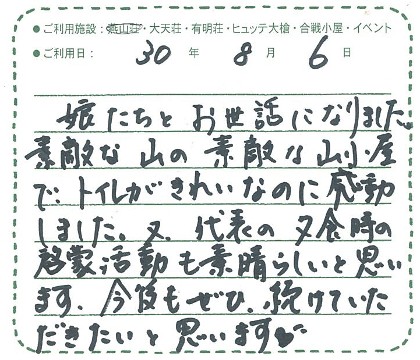 ●ご利用施設：燕山荘・大天荘・有明荘・ヒュッテ大槍・合戦小屋・イベント
●ご利用日：30年8月6日
娘たちとお世話になりました。
素敵な山の素敵な山小屋
で、トイレがきれいなのに感動
しました。又、代表の夕食時の
啓蒙活動も素晴らしいと思い
ます。今後もぜひ、続けていた
だきたいと思います♡